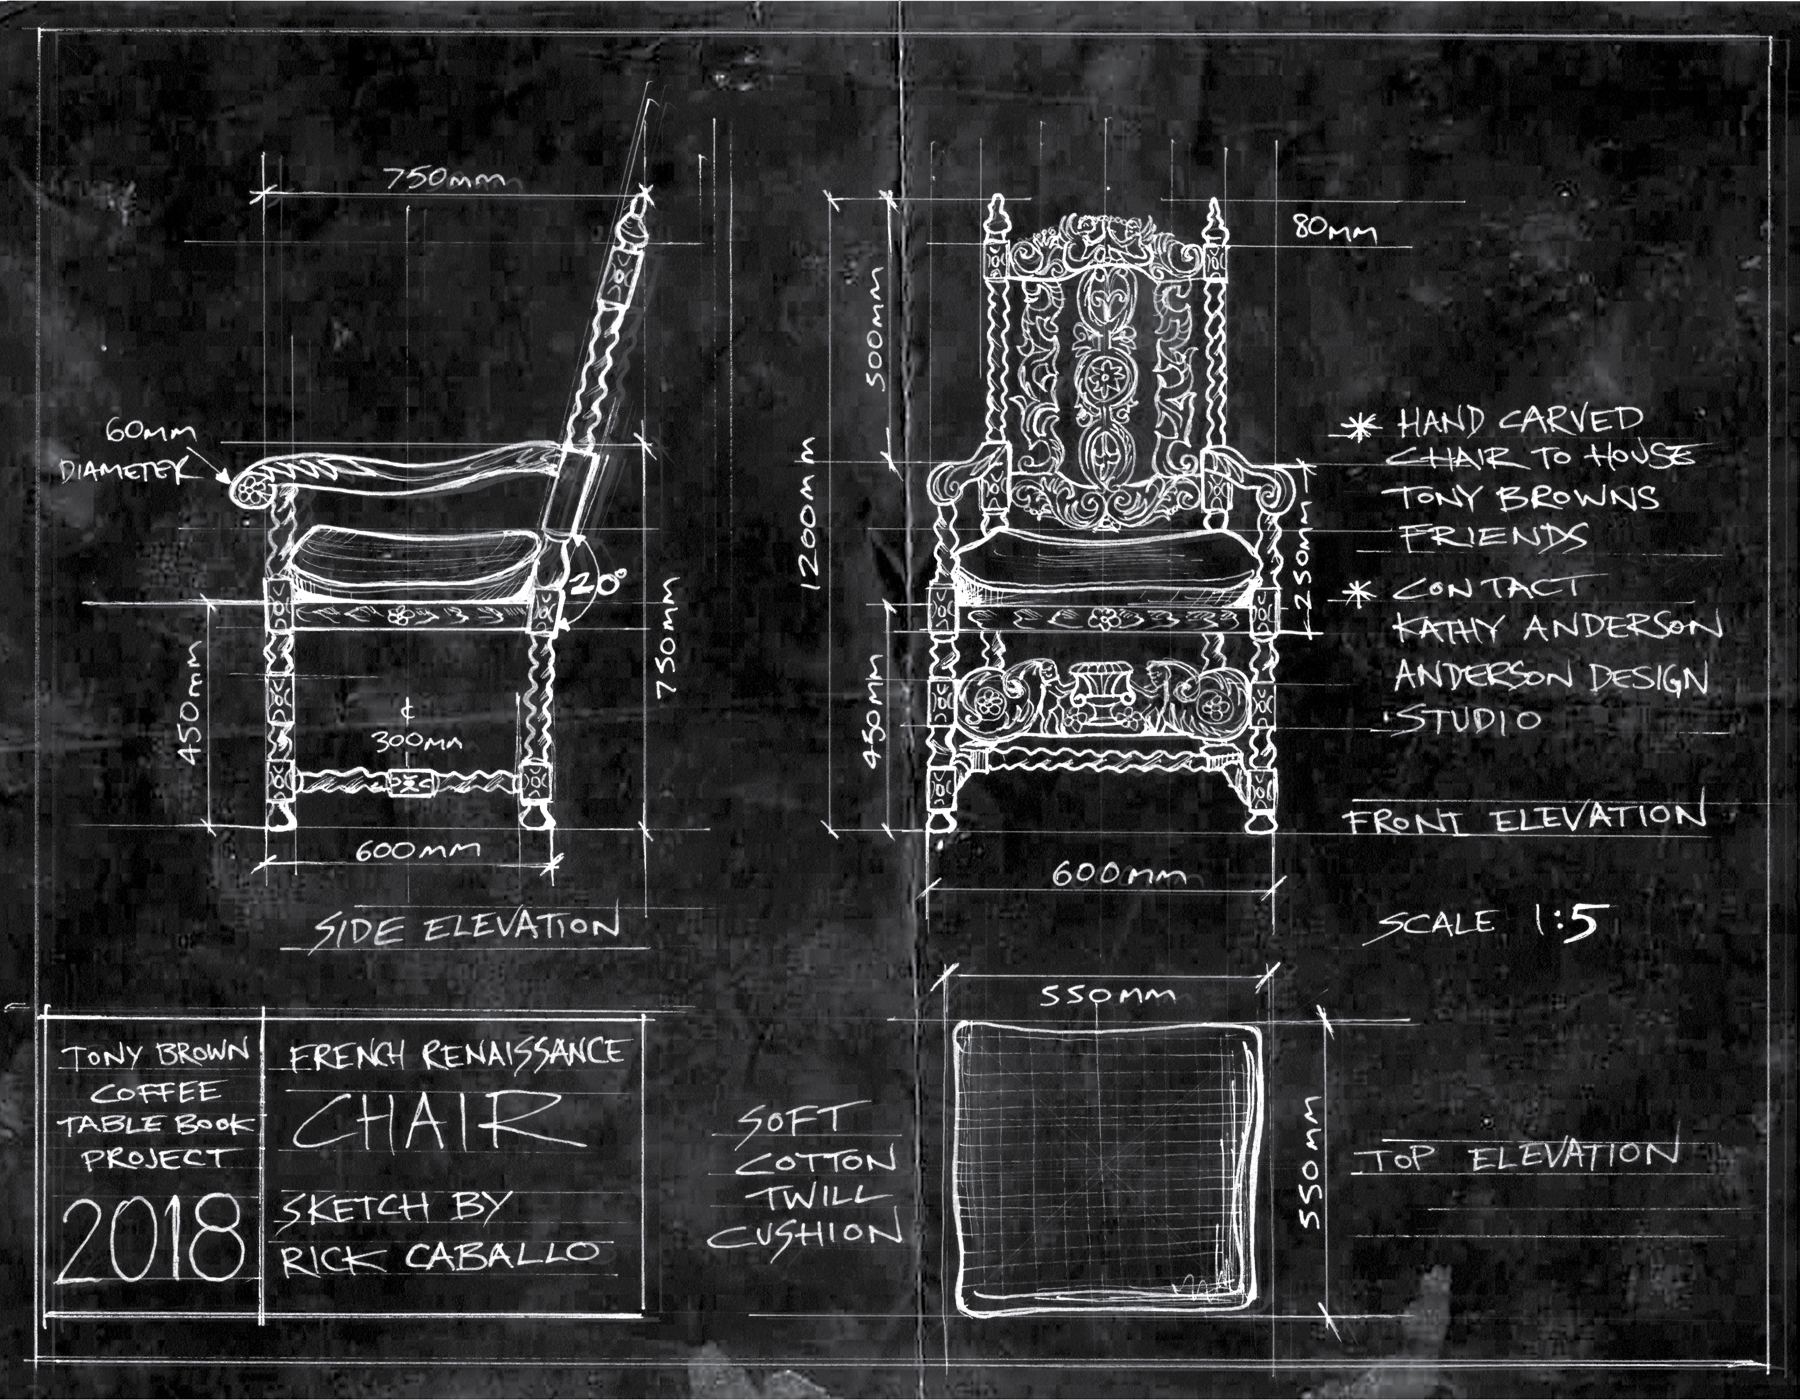 750mm
60mm
DIAMETER
20°
750mm
450mm
¢
300mm
600mm
SIDE ELEVATION
80mm
500mm
1200mm
250mm
450mm
600mm
* HAND CARVED
CHAIR TO HOUSE
TONY BROWNS
FRIENDS
* CONTACT
KATHY ANDERSON
ANDERSON DESIGN
STUDIO
FRONT ELEVATION
SCALE 1:5
550mm
550mm
SOFT
COTTON
TWILL
CUSHION
TOP ELEVATION
TONY BROWN
COFFEE
TABLE BOOK
PROJECT
2018
FRENCH RENAISSANCE
CHAIR
SKETCH BY
RICK CABALLO